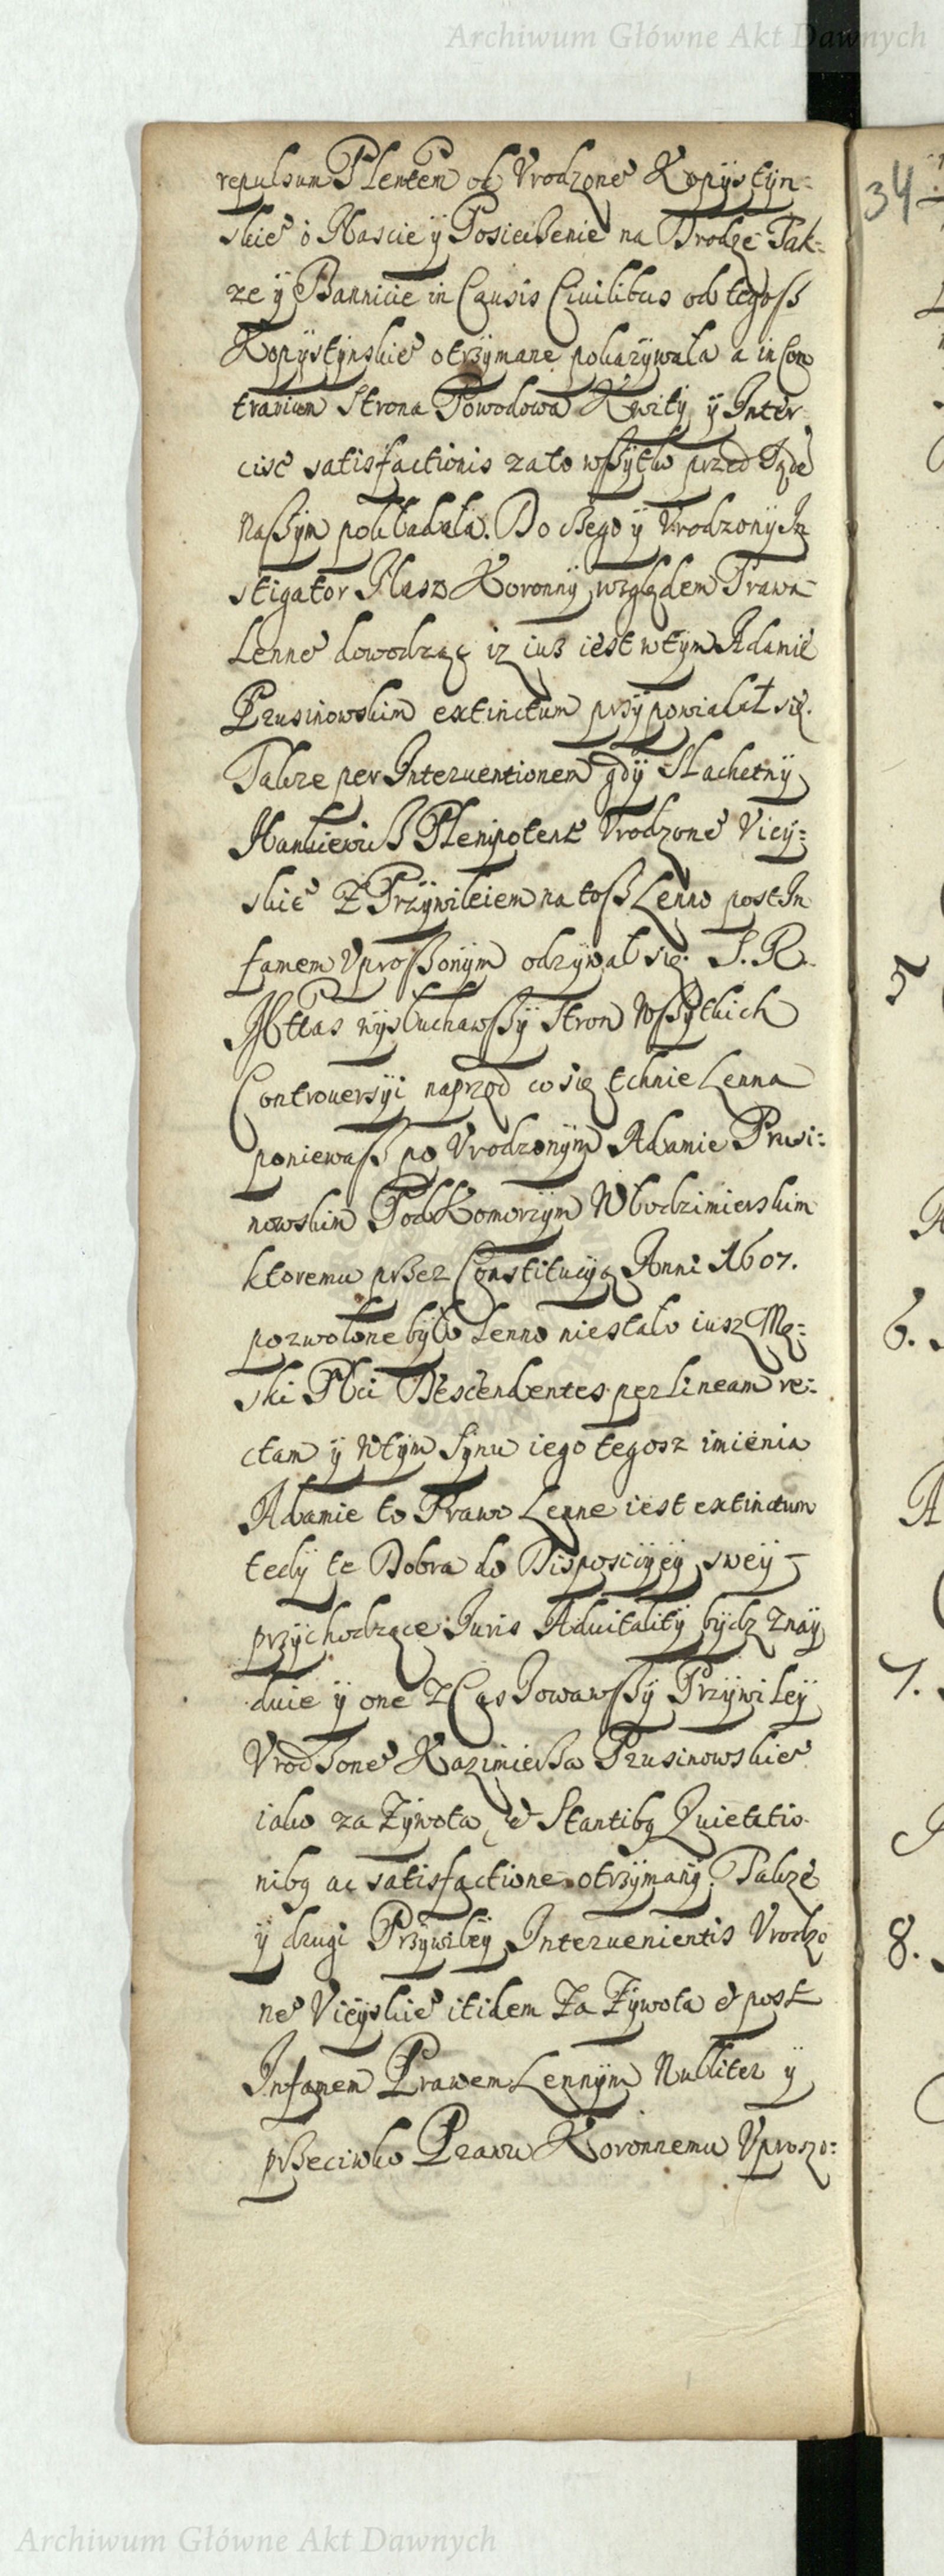 Archiwum Główne Akt Dawnych
repulsam Plentem od Vrodzone° Kopÿstÿn:
skie° o Naście ÿ Posieczenie na Drodze Tak:
ze ÿ Bannicie in Causis Ciuilibus od tegosz
Kopÿstÿnskie° otrzÿmane pokazÿwała a in Con
trarium Strona Powodowa Kwitÿ ÿ Inter
cisę satisfactionis zato wszÿtko przed Sądē
Naszÿm pokładała. Do czego ÿ Vrodzonÿ In
stigator Nasz Koronnÿ względem Prawa
Lenne° dowodząc iz iusz iest w tÿm Adamie
Prusinowskim extinctum przÿpowiadał się.
Takze per Interuentionem gdÿ Slachetnÿ
Hankiewicz Plenipotent Vrodzone° Vieÿ:
skie° Z Przÿwileiem na tosz Lenno post In
famem Vproszonÿm odzÿwał się. S. R.
Nttas wÿsłuchawszÿ Stron Wszÿtkich
Controuersÿi naprzod co się tchnie Lenna
poniewasz po Vrodzonÿm Adamie Prusi:
nowskim PodKomorzÿm Włodzimierskim
ktoremu przez Constitucÿą Anni 1607.
pozwolone bÿło Lenno niestało iusz Mę:
ski Płci Descendentes per Lineam re:
ctam ÿ W tÿm Sÿnu iego tegosz imienia
Adamie to Prawo Lenne iest extinctum
tedÿ te Dobra do Disposicÿeÿ sweÿ
przÿchodzące Iuris Aduitalitÿ bÿdz Znaÿ
duie ÿ one ZCassowawszÿ Przÿwileÿ
Vrodzone° Kazimierza Prusinowskie°
iako za Zÿwota, et Stantibq Quietatio
nibq ac satisfactione otrzÿmanÿ. Takze
ÿ drugi Przÿwileÿ Interuenientis Vrodzo
ne° Vieÿskie° itidem Za Zÿwota et post
Infamem Prawem Lennÿm Nulliter ÿ
przeciwko Prawu Koronnemu Vproszo:
34
5
6.
7.
8.
Archiwum Główne Akt Dawnych